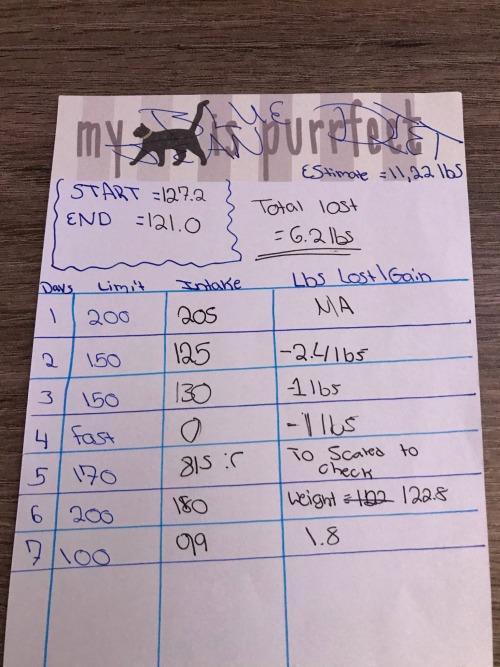 my is purrfect
DIET
EStimate = 11,22 lbS
START = 127.2
END = 121.0
Total lost
= 6.2 lbs
Days Limit Intake Lbs Lost/Gain
1 200 205 N/A
2 150 125 -2.4 lbs
3 150 130 -1 lbs
4 fast 0 -1 lbs
5 170 815 :c To Scared to check
6 200 180 Weight = 122 122.8
7 100 99 1.8